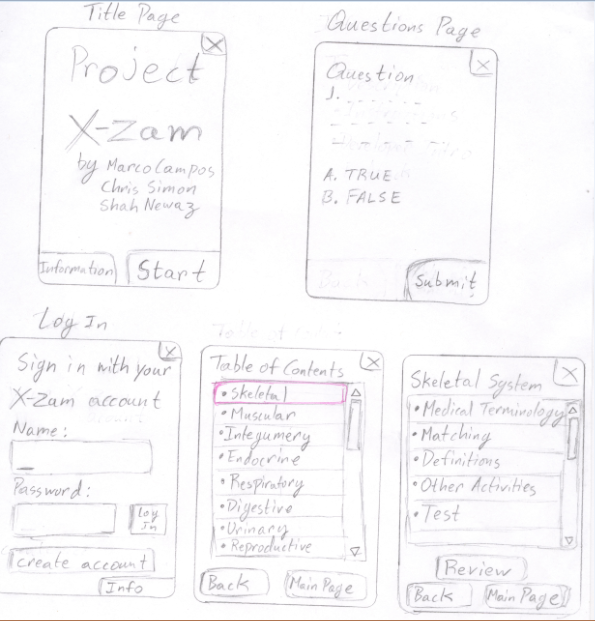 Title Page
X
Project
X-Zam
by Marco Campos
Chris Simon
Shah Newaz
Information
Start
Questions Page
X
Question
1.
A. TRUE
B. FALSE
Back
Submit
Log In
X
Sign in with your
X-Zam account
Name:
Password:
Log
In
create account
Info
Table of Contents
X
• Skeletal
• Muscular
• Integumery
• Endocrine
• Respiratory
• Digestive
• Urinary
• Reproductive
Back
Main Page
Skeletal System
X
• Medical Terminology
• Matching
• Definitions
• Other Activities
• Test
Review
Back
Main Page